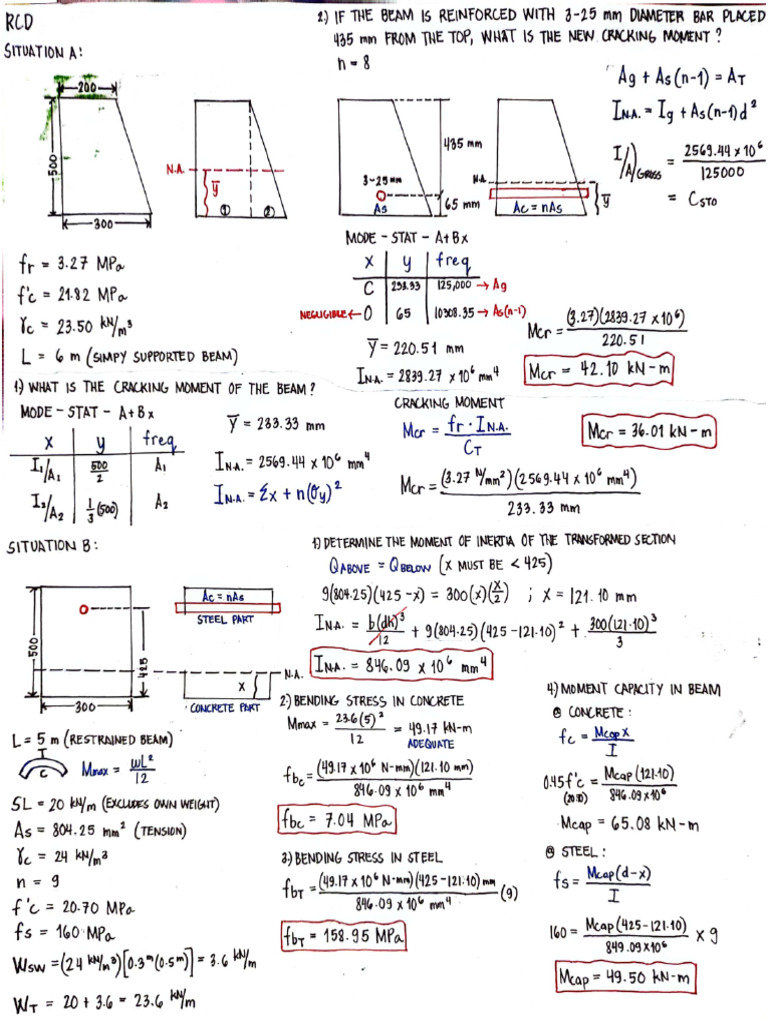 RCD
SITUATION A:
200
500
300
N.A.
y̅
① ②
fr = 3.27 MPa
f'c = 21.82 MPa
γc = 23.50 kN/m³
L = 6 m (SIMPY SUPPORTED BEAM)
1) WHAT IS THE CRACKING MOMENT OF THE BEAM?
MODE - STAT - A+Bx
x y freq
I₁/A₁ 500/2 A₁
I₂/A₂ 1/3 (500) A₂
y̅ = 233.33 mm
I N.A. = 2569.44 x 10⁶ mm⁴
I N.A. = Σx + n(σy)²
2) IF THE BEAM IS REINFORCED WITH 3-25 mm DIAMETER BAR PLACED
435 mm FROM THE TOP, WHAT IS THE NEW CRACKING MOMENT?
n = 8
3-25mm
As
435 mm
65 mm
N.A.
Ac = nAs
y̅
Ag + As(n-1) = AT
I N.A. = Ig + As(n-1)d²
I/A) GROSS = 2569.44 x 10⁶ / 125000
= C STO
MODE - STAT - A+Bx
x y freq
C 233.33 125,000 → Ag
NEGLIGIBLE ← 0 65 10308.35 → As(n-1)
y̅ = 220.51 mm
I N.A. = 2839.27 x 10⁶ mm⁴
Mcr = (3.27)(2839.27 x 10⁶) / 220.51
Mcr = 42.10 kN-m
CRACKING MOMENT
Mcr = fr · I N.A. / CT
Mcr = 36.01 kN-m
Mcr = (3.27 N/mm²)(2569.44 x 10⁶ mm⁴) / 233.33 mm
SITUATION B:
500
300
425
Ac = nAs
STEEL PART
N.A.
x
CONCRETE PART
L = 5 m (RESTRAINED BEAM)
T
C
Mmax = ωL² / 12
SL = 20 kN/m (EXCLUDES OWN WEIGHT)
As = 804.25 mm² (TENSION)
γc = 24 kN/m³
n = 9
f'c = 20.70 MPa
fs = 160 MPa
Wsw = (24 kN/m³)[0.3m(0.5m)] = 3.6 kN/m
WT = 20 + 3.6 = 23.6 kN/m
1) DETERMINE THE MOMENT OF INERTIA OF THE TRANSFORMED SECTION
Q ABOVE = Q BELOW (x MUST BE < 425)
9(804.25)(425-x) = 300(x)(x/2) ; x = 121.10 mm
I N.A. = b(dk)³/12 + 9(804.25)(425-121.10)² + 300(121.10)³/3
I N.A. = 846.09 x 10⁶ mm⁴
2) BENDING STRESS IN CONCRETE
Mmax = 23.6(5)² / 12 = 49.17 kN-m
ADEQUATE
fbc = (49.17 x 10⁶ N-mm)(121.10 mm) / 846.09 x 10⁶ mm⁴
fbc = 7.04 MPa
3) BENDING STRESS IN STEEL
fbT = (49.17 x 10⁶ N-mm)(425-121.10) mm / 846.09 x 10⁶ mm⁴ (9)
fbT = 158.95 MPa
4) MOMENT CAPACITY IN BEAM
@ CONCRETE:
fc = Mcap x / I
0.45f'c = Mcap(121.10) / 846.09x10⁶
(20.70)
Mcap = 65.08 kN-m
@ STEEL:
fs = Mcap(d-x) / I
160 = Mcap(425-121.10) / 849.09x10⁶ x 9
Mcap = 49.50 kN-m